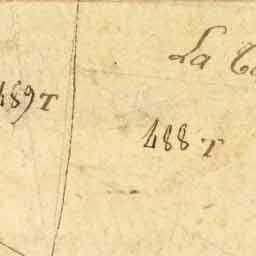 La
489 T
488 T